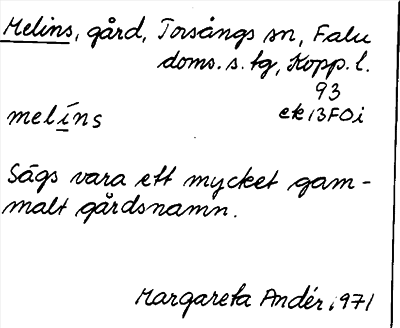 Melins, gård, Torsångs sn, Falu
doms. s. tg, Kopp. l.
93
melíns ek 13F0i
Sägs vara ett mycket gam-
malt gårdsnamn.
Margareta Andér 1971